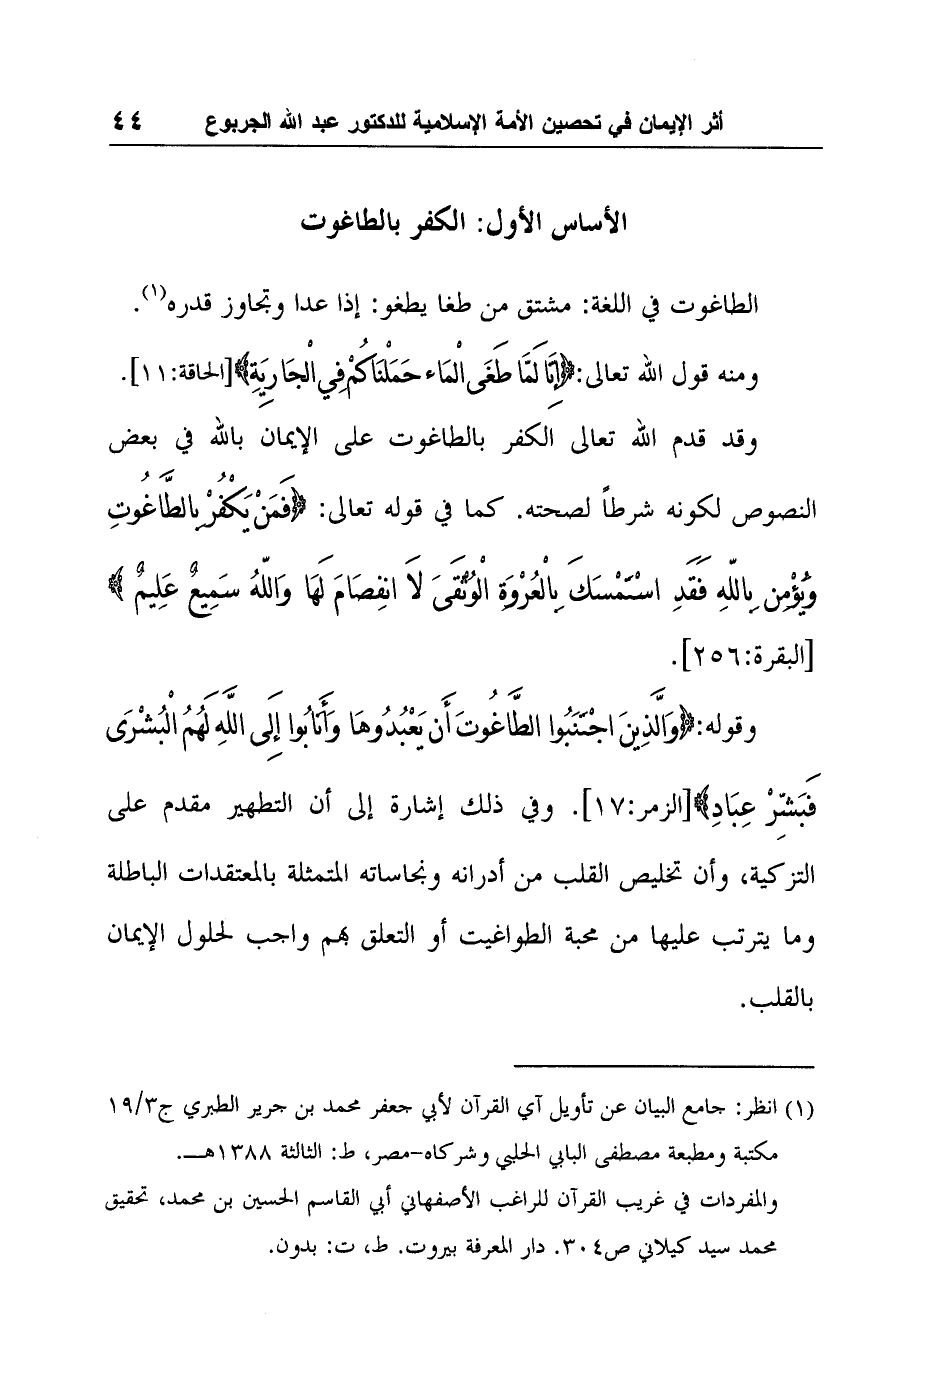 أثر الإيمان في تحصين الأمة الإسلامية للدكتور عبد الله الجربوع ٤٤
الأساس الأول: الكفر بالطاغوت
الطاغوت في اللغة: مشتق من طغا يطغو: إذا عدا وتجاوز قدره(١).
ومنه قول الله تعالى:﴿إِنَّا لَمَّا طَغَى الْمَاء حَمَلْنَاكُمْ فِي الْجَارِيَةِ﴾[الحاقة:١١].
وقد قدم الله تعالى الكفر بالطاغوت على الإيمان بالله في بعض
النصوص لكونه شرطاً لصحته. كما في قوله تعالى: ﴿فَمَنْ يَكْفُرْ بِالطَّاغُوتِ
وَيُؤْمِن بِاللَّهِ فَقَدِ اسْتَمْسَكَ بِالْعُرْوَةِ الْوُثْقَىَ لاَ انفِصَامَ لَهَا وَاللَّهُ سَمِيعٌ عَلِيمٌ ﴾
[البقرة:٢٥٦].
وقوله:﴿وَالَّذِينَ اجْتَنَبُوا الطَّاغُوتَ أَن يَعْبُدُوهَا وَأَنَابُوا إِلَى اللَّهِ لَهُمُ الْبُشْرَى
فَبَشِّرْ عِبَادِ﴾[الزمر:١٧]. وفي ذلك إشارة إلى أن التطهير مقدم على
التزكية، وأن تخليص القلب من أدرانه ونجاساته المتمثلة بالمعتقدات الباطلة
وما يترتب عليها من محبة الطواغيت أو التعلق بهم واجب لحلول الإيمان
بالقلب.
(١) انظر: جامع البيان عن تأويل آي القرآن لأبي جعفر محمد بن جرير الطبري ج١٩/٣
مكتبة ومطبعة مصطفى البابي الحلبي وشركاه-مصر، ط: الثالثة ١٣٨٨هـ.
والمفردات في غريب القرآن للراغب الأصفهاني أبي القاسم الحسين بن محمد، تحقيق
محمد سيد كيلاني ص٣٠٤. دار المعرفة بيروت. ط، ت: بدون.